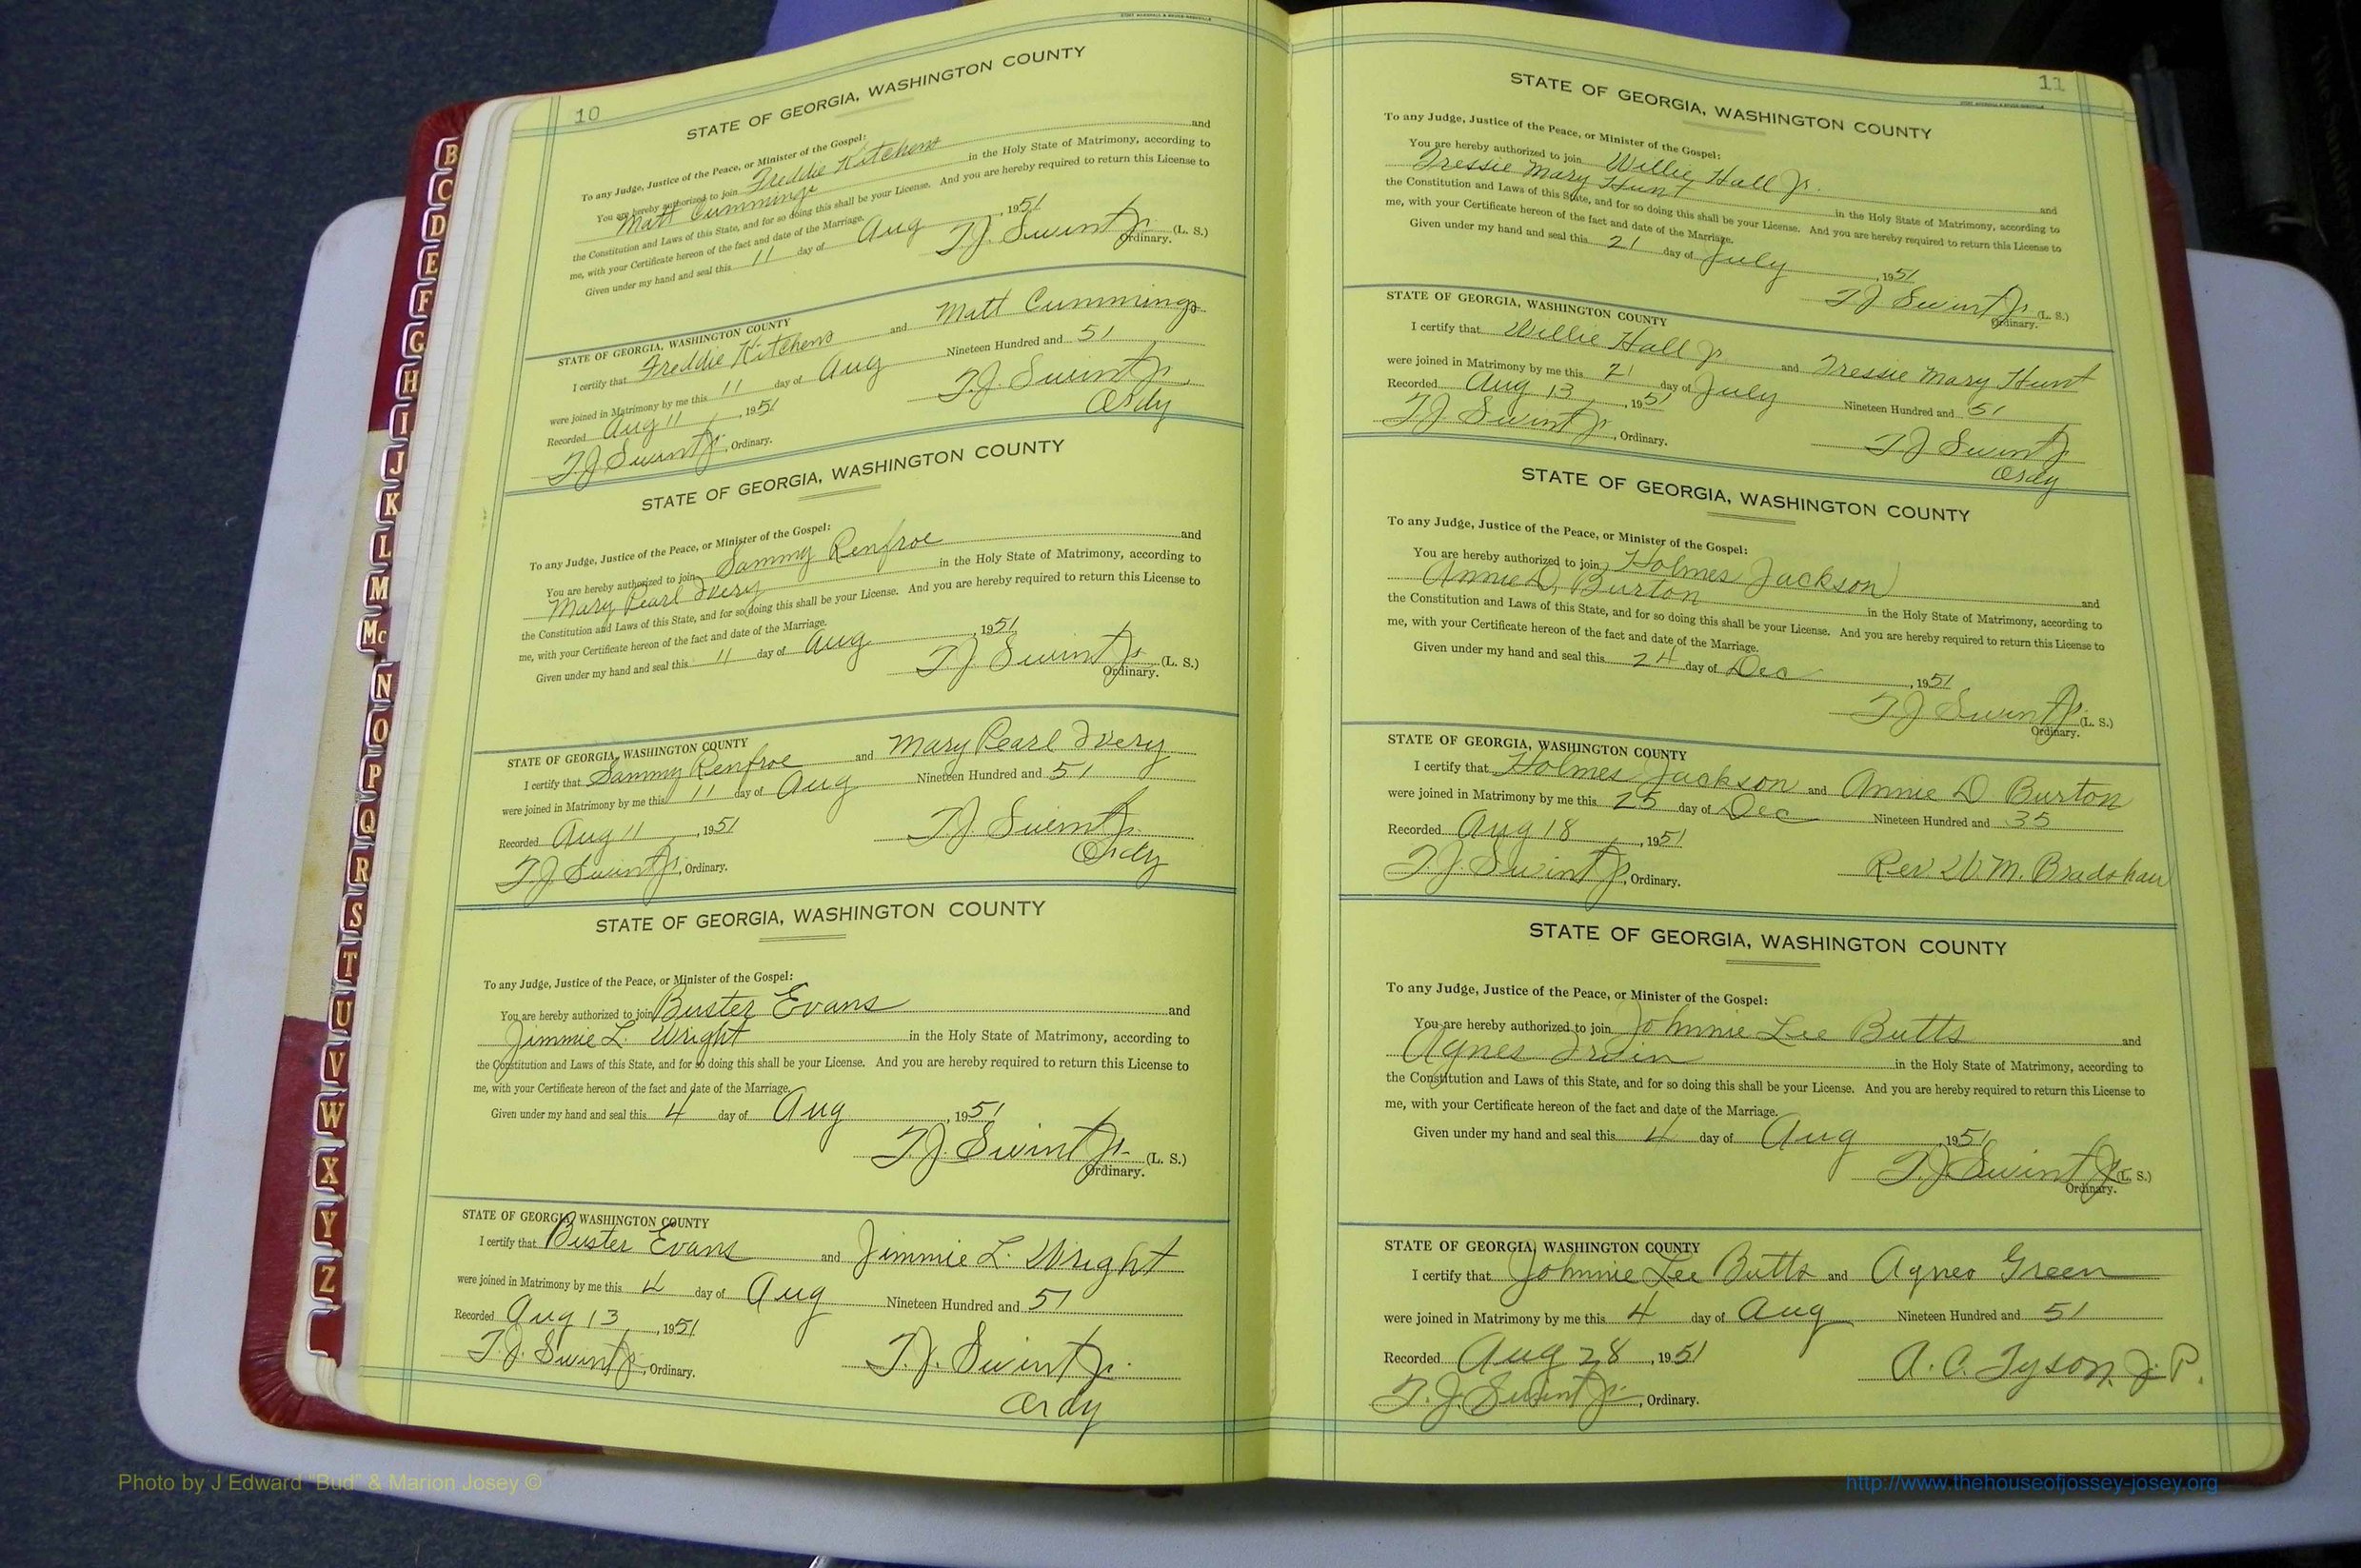 10
STATE OF GEORGIA, WASHINGTON COUNTY
To any Judge, Justice of the Peace, or Minister of the Gospel:
You are hereby authorized to join Freddie Kitchens and
Matt Cummings in the Holy State of Matrimony, according to
the Constitution and Laws of this State, and for so doing this shall be your License. And you are hereby required to return this License to
me, with your Certificate hereon of the fact and date of the Marriage.
Given under my hand and seal this 11 day of Aug, 1951
T.J. Swint Jr. (L. S.)
Ordinary.
STATE OF GEORGIA, WASHINGTON COUNTY
I certify that Freddie Kitchens and Matt Cummings
were joined in Matrimony by me this 11 day of Aug Nineteen Hundred and 51
Recorded Aug 11, 1951 T.J. Swint Jr.
T.J. Swint Jr., Ordinary. Ordy
STATE OF GEORGIA, WASHINGTON COUNTY
To any Judge, Justice of the Peace, or Minister of the Gospel:
You are hereby authorized to join Sammy Renfroe and
Mary Pearl Ivery in the Holy State of Matrimony, according to
the Constitution and Laws of this State, and for so doing this shall be your License. And you are hereby required to return this License to
me, with your Certificate hereon of the fact and date of the Marriage.
Given under my hand and seal this 11 day of Aug, 1951
T.J. Swint Jr. (L. S.)
Ordinary.
STATE OF GEORGIA, WASHINGTON COUNTY
I certify that Sammy Renfroe and Mary Pearl Ivery
were joined in Matrimony by me this 11 day of Aug Nineteen Hundred and 51
Recorded Aug 11, 1951 T.J. Swint Jr.
T.J. Swint Jr., Ordinary. Ordy
STATE OF GEORGIA, WASHINGTON COUNTY
To any Judge, Justice of the Peace, or Minister of the Gospel:
You are hereby authorized to join Buster Evans and
Jimmie L. Wright in the Holy State of Matrimony, according to
the Constitution and Laws of this State, and for so doing this shall be your License. And you are hereby required to return this License to
me, with your Certificate hereon of the fact and date of the Marriage.
Given under my hand and seal this 4 day of Aug, 1951
T.J. Swint Jr. (L. S.)
Ordinary.
STATE OF GEORGIA, WASHINGTON COUNTY
I certify that Buster Evans and Jimmie L. Wright
were joined in Matrimony by me this 4 day of Aug Nineteen Hundred and 51
Recorded Aug 13, 1951
T.J. Swint Jr., Ordinary. T.J. Swint Jr.
Ordy
11
STATE OF GEORGIA, WASHINGTON COUNTY
To any Judge, Justice of the Peace, or Minister of the Gospel:
You are hereby authorized to join Willie Hall Jr. and
Tressie Mary Hunt in the Holy State of Matrimony, according to
the Constitution and Laws of this State, and for so doing this shall be your License. And you are hereby required to return this License to
me, with your Certificate hereon of the fact and date of the Marriage.
Given under my hand and seal this 21 day of July, 1951
T J Swint Jr (L. S.)
Ordinary.
STATE OF GEORGIA, WASHINGTON COUNTY
I certify that Willie Hall Jr and Tressie Mary Hunt
were joined in Matrimony by me this 21 day of July Nineteen Hundred and 51
Recorded Aug 13, 1951
T.J. Swint Jr, Ordinary. T J Swint Jr
Ordy
STATE OF GEORGIA, WASHINGTON COUNTY
To any Judge, Justice of the Peace, or Minister of the Gospel:
You are hereby authorized to join Holmes Jackson and
Annie D. Burton in the Holy State of Matrimony, according to
the Constitution and Laws of this State, and for so doing this shall be your License. And you are hereby required to return this License to
me, with your Certificate hereon of the fact and date of the Marriage.
Given under my hand and seal this 24 day of Dec, 1951
T J Swint Jr. (L. S.)
Ordinary.
STATE OF GEORGIA, WASHINGTON COUNTY
I certify that Holmes Jackson and Annie D Burton
were joined in Matrimony by me this 25 day of Dec Nineteen Hundred and 35
Recorded Aug 18, 1951
T.J. Swint Jr, Ordinary. Rev W.M. Bradshaw
STATE OF GEORGIA, WASHINGTON COUNTY
To any Judge, Justice of the Peace, or Minister of the Gospel:
You are hereby authorized to join Johnnie Lee Butts and
Agnes Irwin in the Holy State of Matrimony, according to
the Constitution and Laws of this State, and for so doing this shall be your License. And you are hereby required to return this License to
me, with your Certificate hereon of the fact and date of the Marriage.
Given under my hand and seal this 4 day of Aug, 1951
T.J. Swint Jr (L. S.)
Ordinary.
STATE OF GEORGIA, WASHINGTON COUNTY
I certify that Johnnie Lee Butts and Agnes Green
were joined in Matrimony by me this 4 day of Aug Nineteen Hundred and 51
Recorded Aug 28, 1951 A. C. Tyson, J. P.
T.J. Swint Jr., Ordinary.
B
C
D
E
F
G
H
I
J
K
L
M
Mc
N
O
P
Q
R
S
T
U
V
W
X
Y
Z
Photo by J Edward "Bud" & Marion Josey ©
http://www.thehouseofjossey-josey.org